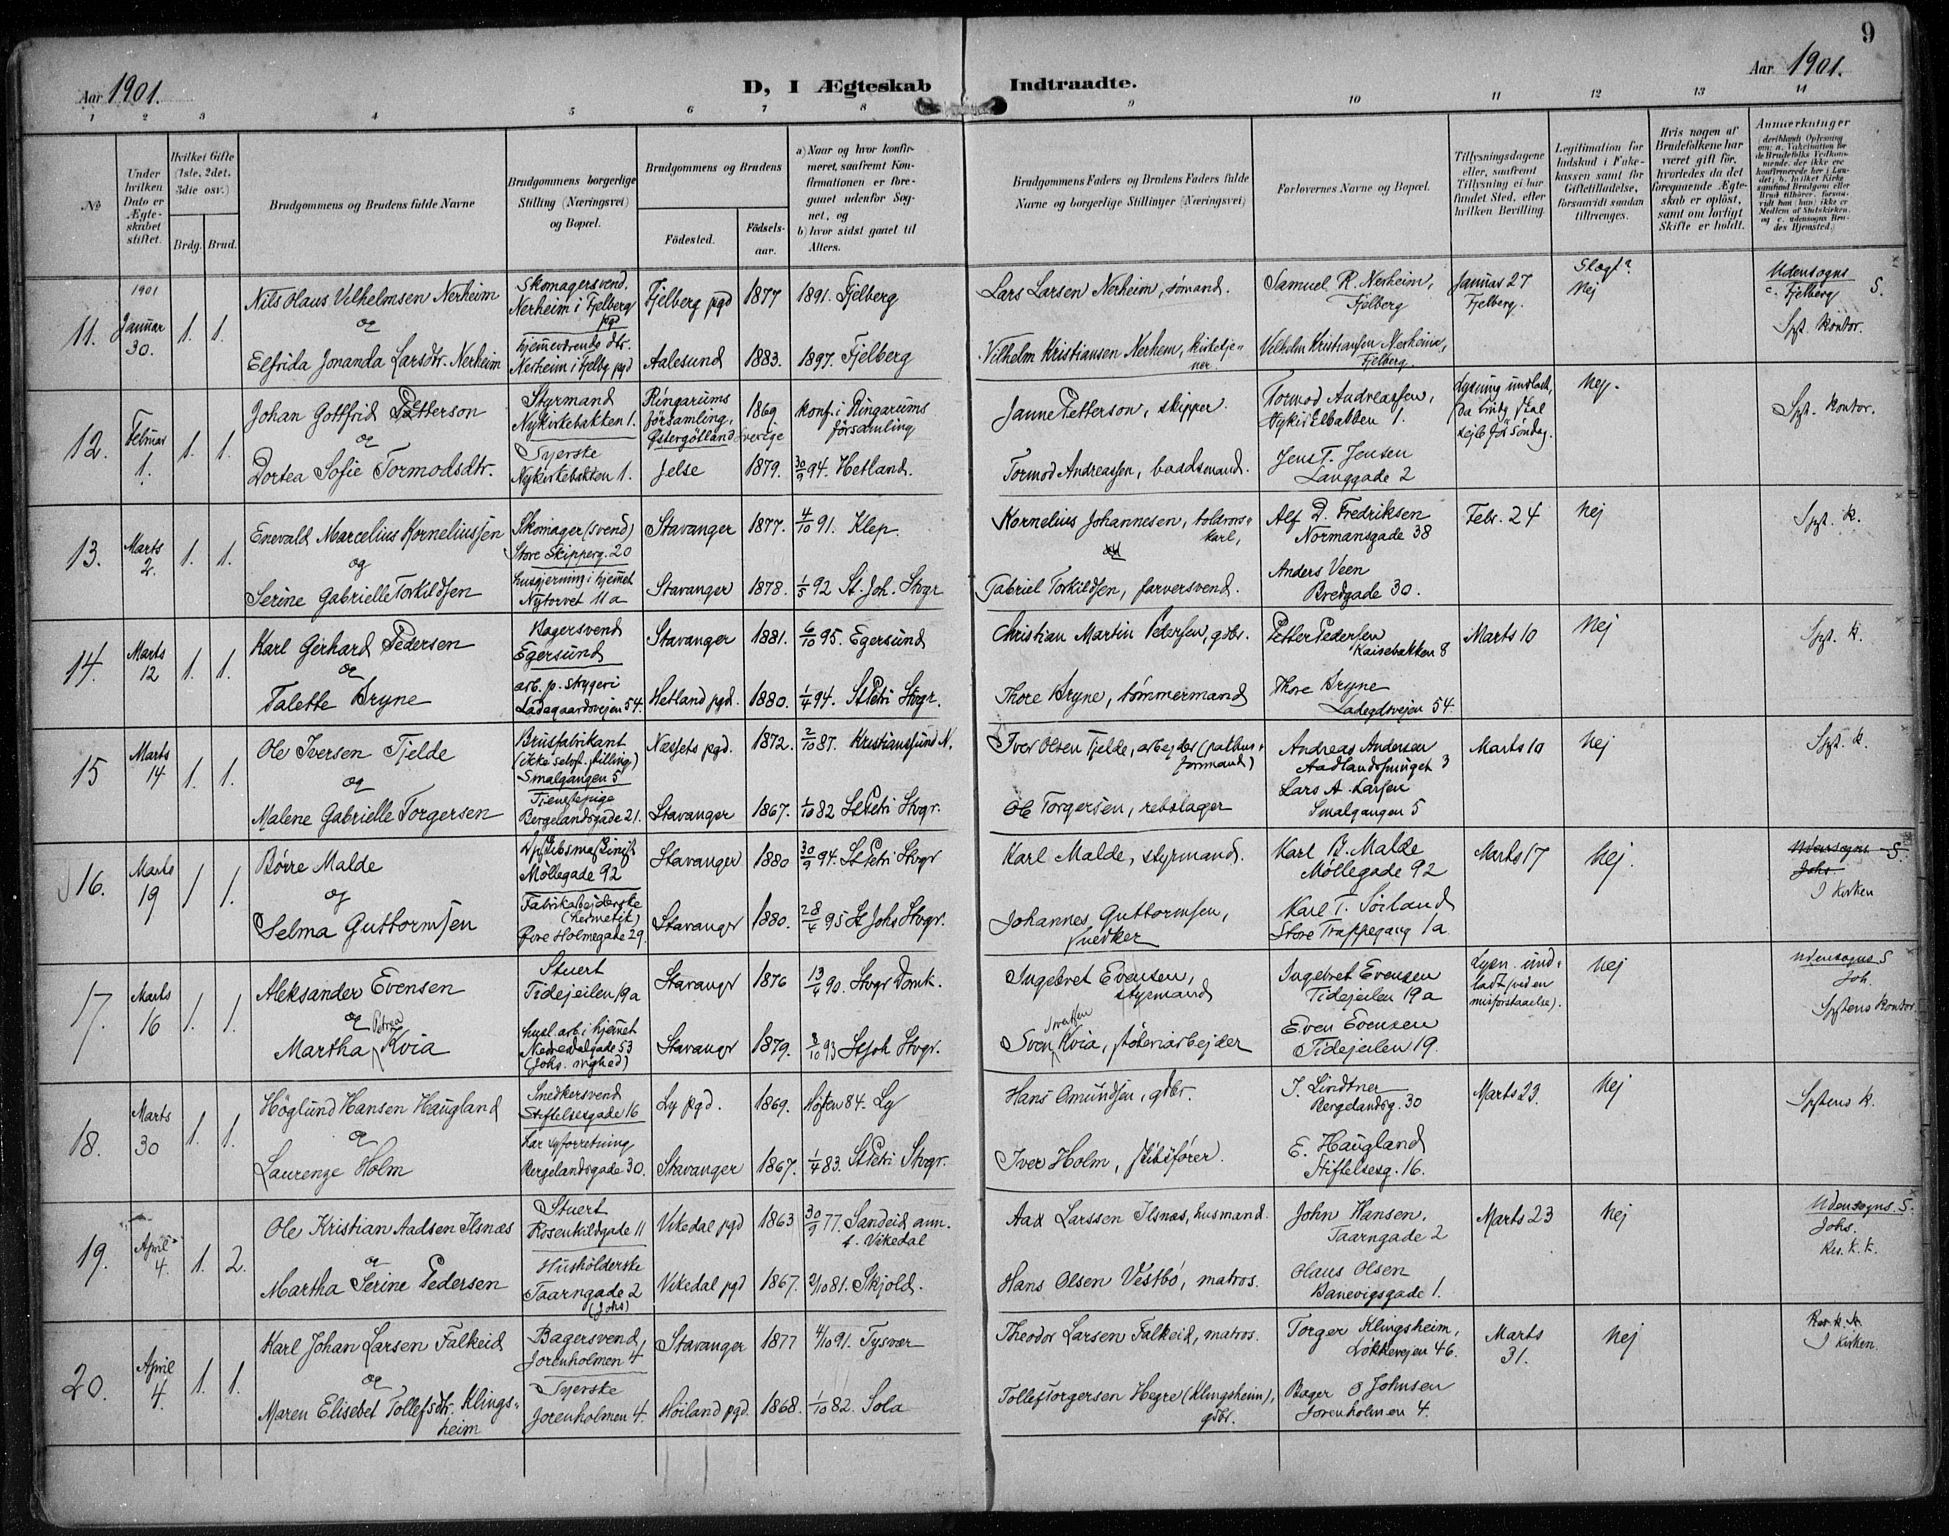 9
Aar 1901.
D, I Ægteskab Indtraadte.
Aar 1901.
1 2 3 4 5 6 7 8 9 10 11 12 13 14
No
Under hvilken Dato er Ægteskabet stiftet.
Hvilket Gifte (1ste, 2det, 3die osv.)
Brdg. Brud.
Brudgommens og Brudens fulde Navne
Brudgommens borgerlige Stilling (Næringsvei) og Bopæl.
Brudgommens og Brudens
Fødested.
Fødselsaar.
a) Naar og hvor konfirmeret, saafremt Konfirmationen er foregaaet udenfor Sognet, og
b) hvor sidst gaaet til Alters.
Brudgommens Faders og Brudens Faders fulde Navne og borgerlige Stillinger (Næringsvei)
Forlovernes Navne og Bopæl.
Tillysningsdagene eller, saafremt Tillysning ei har fundet Sted, efter hvilken Bevilling.
Legitimation for Indskud i Enkekassen samt for Giftetilladelse, forsaavidt saadan tiltrænges.
Hvis nogen af Brudefolkene har været gift før, hvorledes da det foregaaende Ægteskab er opløst, samt om lovligt Skifte er holdt.
Anmærkninger
11. 1901 Januar 30. 1. 1.
Nils Olaus Velhelmsen Nerheim
og
Elfrida Jonanda Larsdtr. Nerheim
Skomagersvend,
Nerheim i Fjelberg
pgd
hjemmeværende dtr.
Nerheim i Fjelbg pgd
Fjelberg pgd 1877 1891. Fjelberg
Aalesund 1883. 1897. Fjelberg
Lars Larsen Nerheim, sømand.
Vilhelm Kristiansen Nerhem, kirketjener.
Samuel R. Nerheim,
Fjelberg
Velhelm Kristiansen Nerheim,
Fjelberg.
Januar 27
Fjelberg.
Slægt?
Nej
Udensogns S.
c. Fjelberg
Spt. kontor.
12. Februar 1. 1. 1.
Johan Gottfrid Petterson
og
Dortea Sofie Tormodsdtr.
Styrmand
Nykirkebakken 1.
Syerske
Nykirkebakken 1.
Ringarums
församling,
Østergötland Sverige
1869 konf. i Ringarums
församling
Jelse 1879. 30/9 94. Hetland.
Janne Petterson, skipper.
Tormod Andreassen, baadsmand.
Tormod Andreassen,
Nykirkebakken 1.
Jens T. Jensen
Langgade 2
Lysning undladt,
da brudg skal
sejle før søndag.
Nej.
Spt. kontor.
13. Marts 2. 1. 1.
Enevald Marcelius Korneliussen
og
Serine Gabrielle Torkildsen
Skomager (svend)
Store Skipperg. 20
husgjerning i hjemmet
Nytorvet 11a
Stavanger 1877. 4/10 91. Klep.
Stavanger 1878. 1/5 92 St. Joh. Stvgr
Kornelius Johannesen, toldrorskarl,
Gabriel Torkildsen, farversvend.
Alf D. Fredriksen
Normansgade 38
Anders Veen
Bredgade 30.
Febr. 24
Nej
Spt. k.
14. Marts 12 1. 1.
Karl Gerhard Pedersen
og
Talette Bryne
Bagersvend
Egersund
arb. p. skygeri
Ladegaardsvejen 54.
Stavanger 1881. 6/10 95. Egersund
Hetland pgd. 1880. 1/4 94. St Petri Stvgr.
Christian Martin Pedersen, gdbr.
Thore Bryne, tømmermand
Petter Pedersen
Kaisebakken 8
Thore Bryne
Ladegdsvejen 54.
Marts 10
Nej
Spt. k.
15 Marts 14 1. 1.
Ole Iversen Fjelde
og
Malene Gabrielle Torgersen
Brusfabrikant
(ikke selvst. stilling)
Smalgangen 5
Tjenestepige
Bergelandsgade 21.
Nessets pgd. 1872. 2/10 87. Kristianssund N.
Stavanger 1867. 1/10 82 St Petri Stvgr.
Iver Olsen Fjelde, arbejder (pakhusformand)
Ole Torgersen, rebslager
Andreas Andersen
Aadlandssmuget 3
Lars A. Larsen
Smalgangen 5
Marts 10
Nej
Spt. k.
16. Marts 19 1. 1.
Børre Malde
og
Selma Guttormsen
Møllegade 92
Fabrikarbejderske
(hermetik)
Øvre Holmegade 29.
Stavanger 1880 30/9 94. St Petri Stvgr
Stavanger 1880. 28/4 95 St Johs Stvgr.
Karl Malde, styrmand.
Johannes Guttormsen,
snedker
Karl B. Malde
Møllegade 92
Karl T. Sørland
Store Trappegang 1a
Marts 17
Nej.
Udensogns S.
Johs
I Kirken
17. Marts 16 1. 1.
Aleksander Evensen
og Petrea
Martha Kvia
Stuert
Tidejeilen 19a
husl. arb. i hjemmet
Nedredalgade 53
(Johs. menighed)
Stavangr 1876 13/4 90. Stvgr Domk.
Stavangr 1879. 8/10 93 St Joh Stvgr.
Ingebret Evensen,
styrmand
Svensen
Sven Kvia, støberiarbejder
Ingebret Evensen
Tidejeilen 19a
Even Evensen
Tidejeilen 19.
Lysn. undladt (ved en
misforstaaelse).
Nej
Udensogns S
Joh.
Sptens kontor
18. Marts 30 1. 1.
Höglund Hansen Haugland
og
Laurenze Holm
Snedkersvend
Stiftelsesgade 16
har syforretning
Bergelandsgade 30.
Ly pgd. 1869. Høsten 84. Ly
Stavanger 1867. 1/4 83. St Petri Stvgr.
Hans Omundsen, gdbr.
Iver Holm, skibsfører.
J. Lindtner
Bergelandsg. 30
E. Haugland
Stiftelsesg. 16.
Marts 23.
Nej
Sptens k.
19. April 4. 1. 2.
Ole Kristian Aadsen Ilsnæs
og
Martha Serine Pedersen
Stuert
Rosenkildgade 11
Husholderske
Taarngade 2
(Johs)
Vikedal pgd 1863 30/9 77. Sandeid ann.
t. Vikedal
Vikedal pgd 1867. 2/10 81. Skjold.
Aad Larssen Ilsnæs, husmand.
Hans Olsen Vestbø, matros.
John Hansen,
Taarngade 2
Olaus Olsen
Banevigsgade 1.
Marts 23
Nej
Udensogns. S.
Johs.
Res. k. k.
20. April 4. 1. 1.
Karl Johan Larsen Falkeid
og
Maren Elisebet Tollefsdtr. Klingsheim
Bagersvend,
Jorenholmen 4
Syerske
Jorenholmen 4.
Stavanger 1877 4/10 91. Tysvær
Høiland pgd. 1868. 1/10 82. Sola
Theodor Larsen Falkeid, matros.
Tollef Torgersen Hegre (Klingsheim),
gdbr.
Torger Klingsheim,
Løkkevejen 46.
Bager O Johnsen
Jorenholmen 4.
Marts
31.
Nej
Res. k. k.
I Kirken.